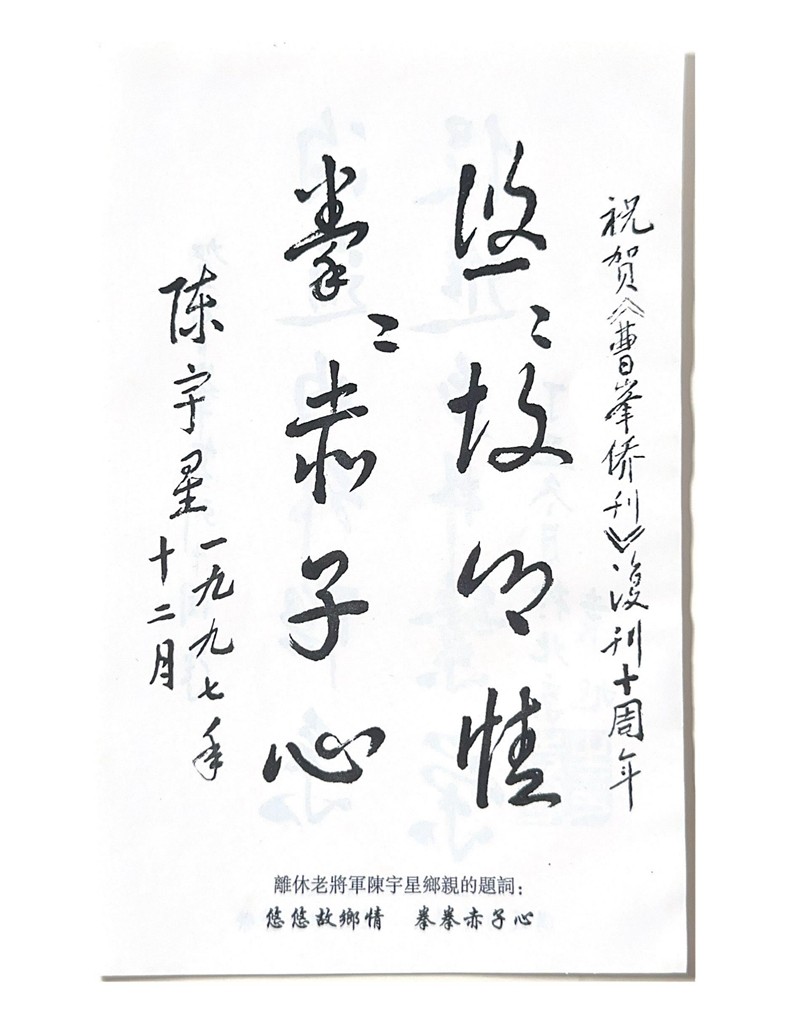 祝贺《曹峯侨刊》復刊十周年
悠〻故乡情
拳〻赤子心
陈宇星
一九九七年
十二月
離休老將軍陳宇星鄉親的題詞：
悠悠故鄉情　拳拳赤子心